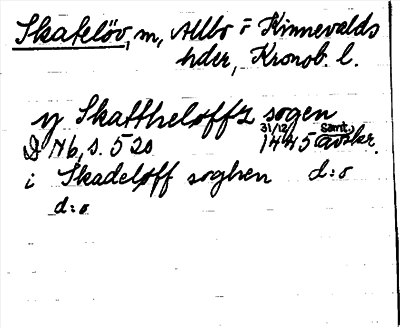 Skatelöv, m, Allbo o Kinnevalds
hder, Kronob. l.
y Skattheløffz sogen
31/12 1445 samt. avskr.
D Nb, s. 520
i Skadeløff soghen d:o
d:o